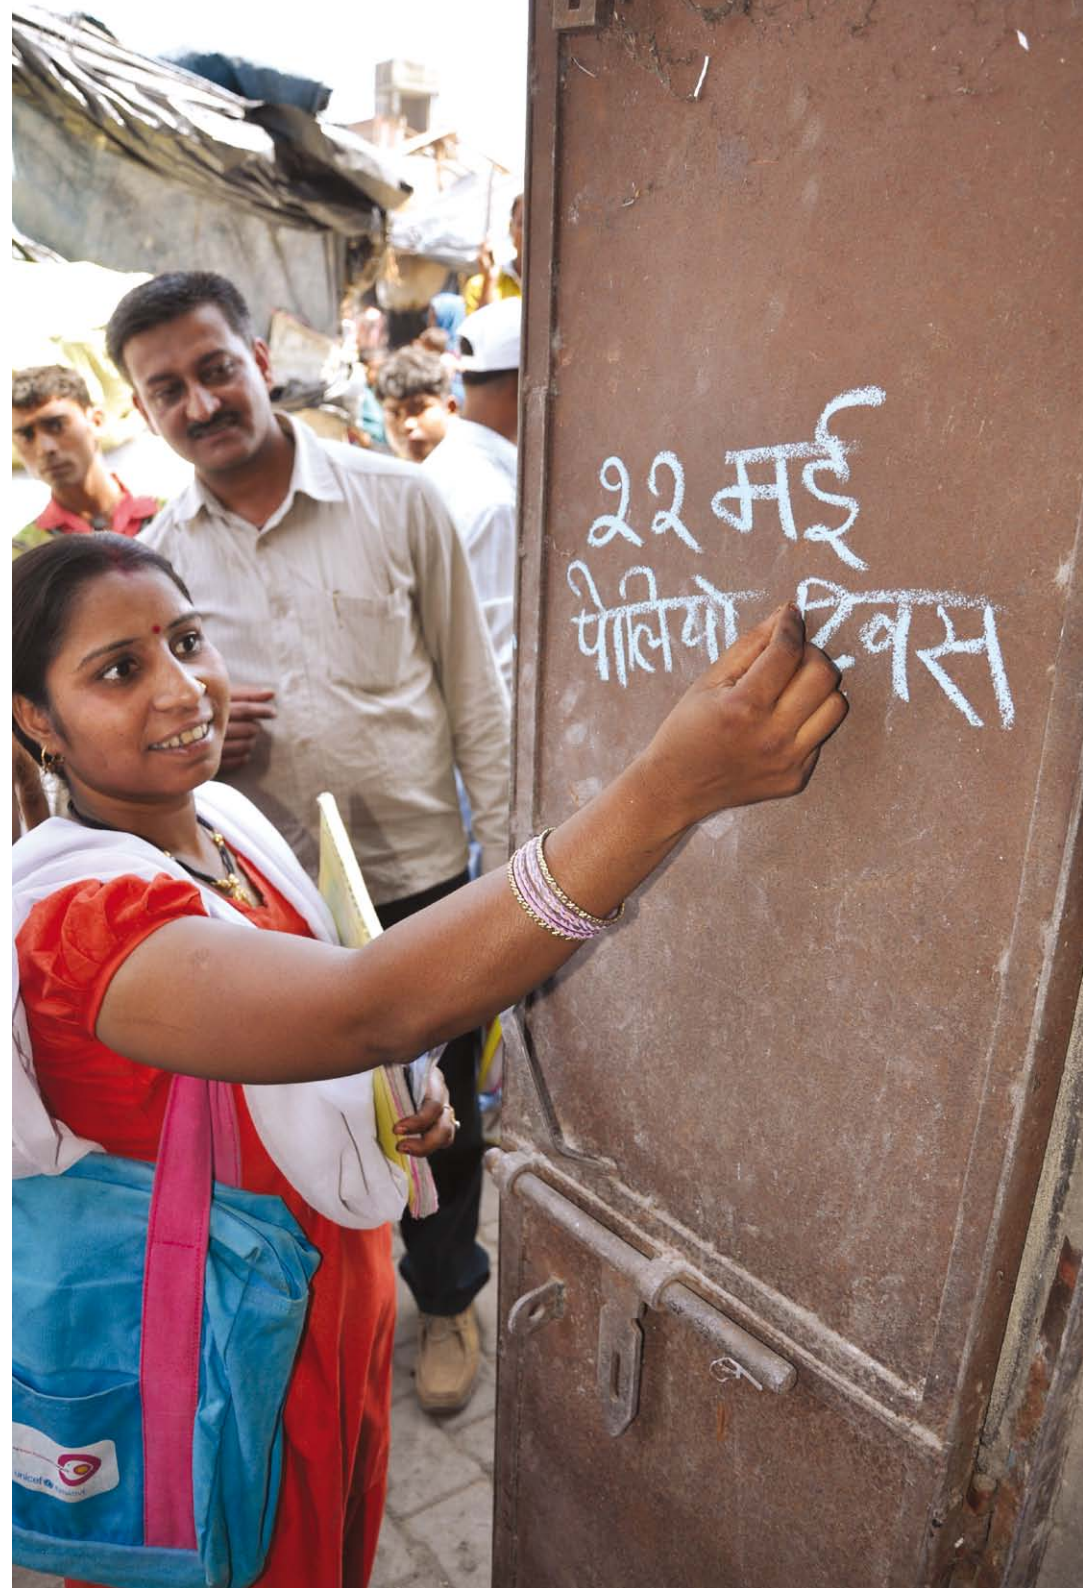 २२ मई
पोलियो दिवस
unicef